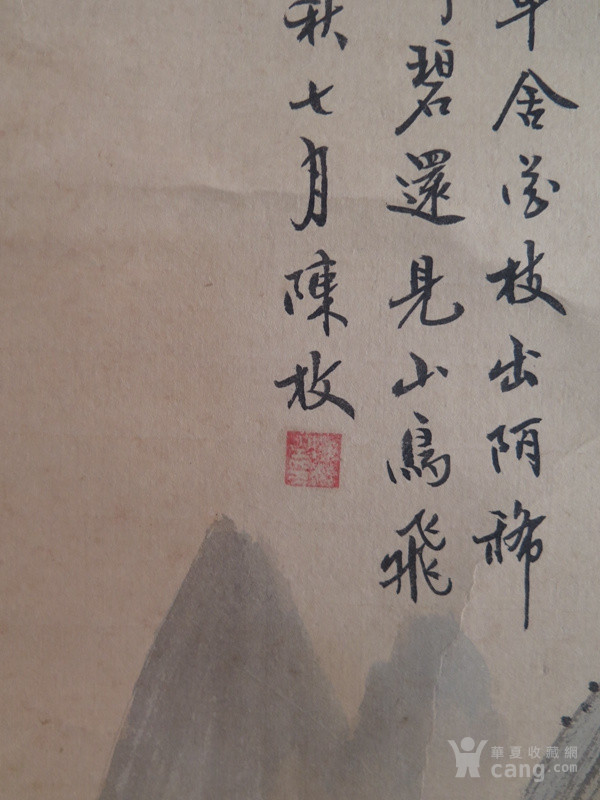 舍枝出陌稀
碧還見山鳥飛
秋七月陳枚
華夏收藏網
cang.com